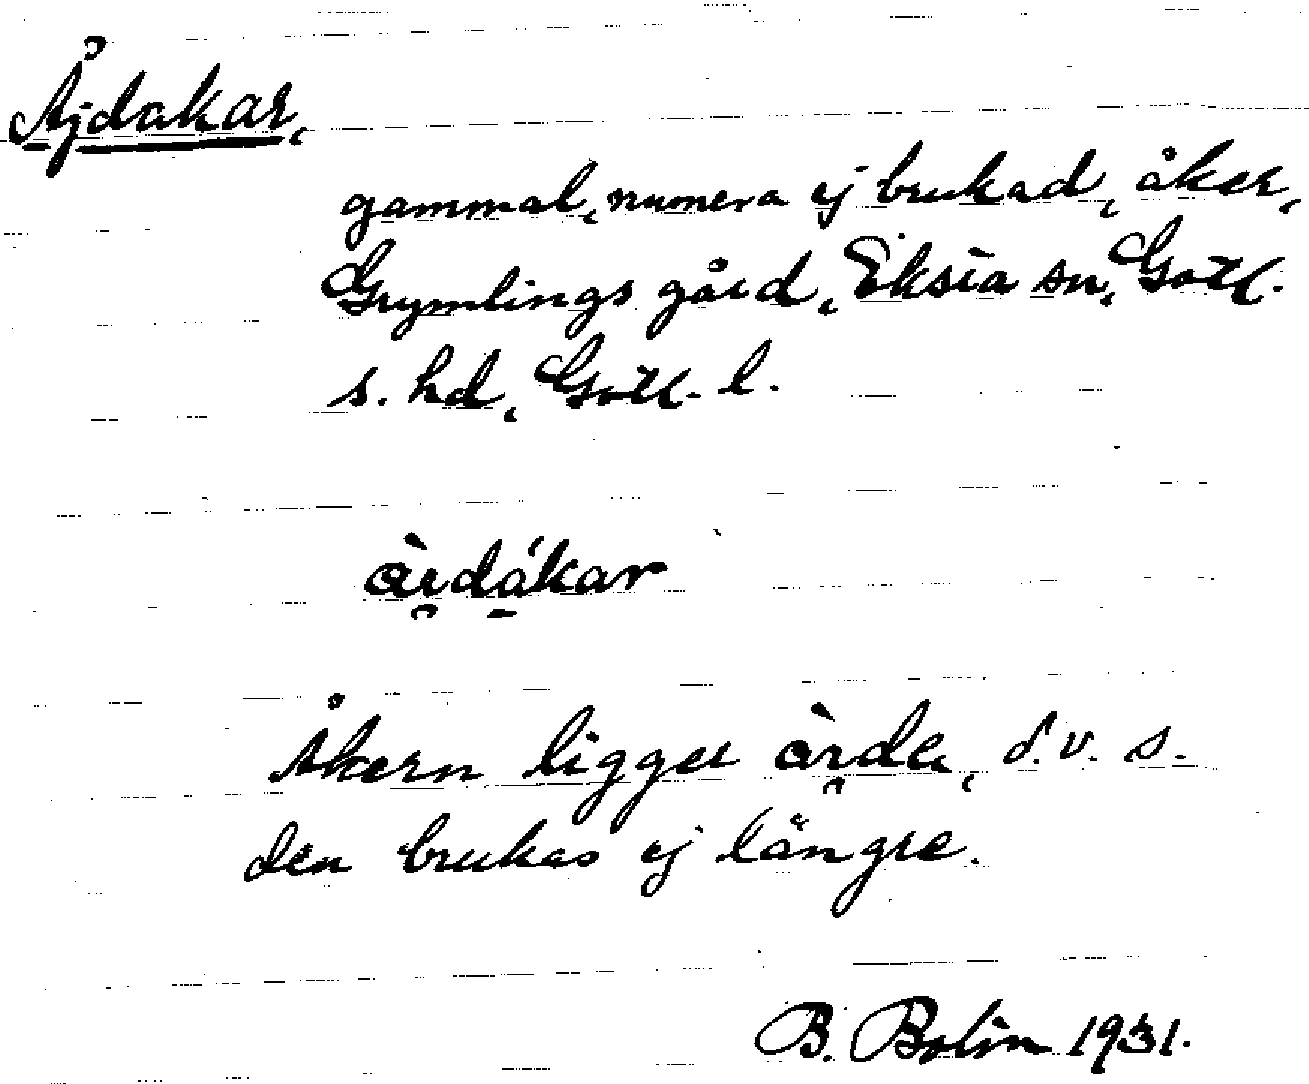 Åjdakar,
gammal, numera ej brukad, åker,
Grymlings gård, Eksta sn, Gotl.
s. hd, Gotl. l.
àrdákar
Åkern ligger àrda, d.v.s.
den brukas ej längre.
B. Bolin 1931.